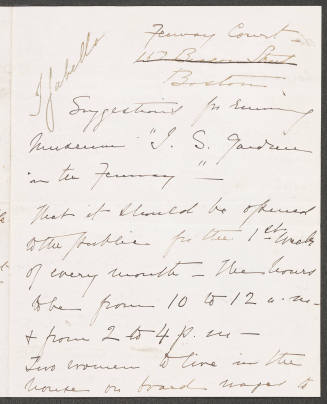 Isabella
Fenway Court -
152 Beacon Street
Boston
Suggestions for running
Museum "I. S. Gardner
in the Fenway" -
That it should be opened
to the public for the 1st week
of every month - the hours
to be from 10 to 12 a.m -
& from 2 to 4 p.m -
Two women to live in the
house on board wages to